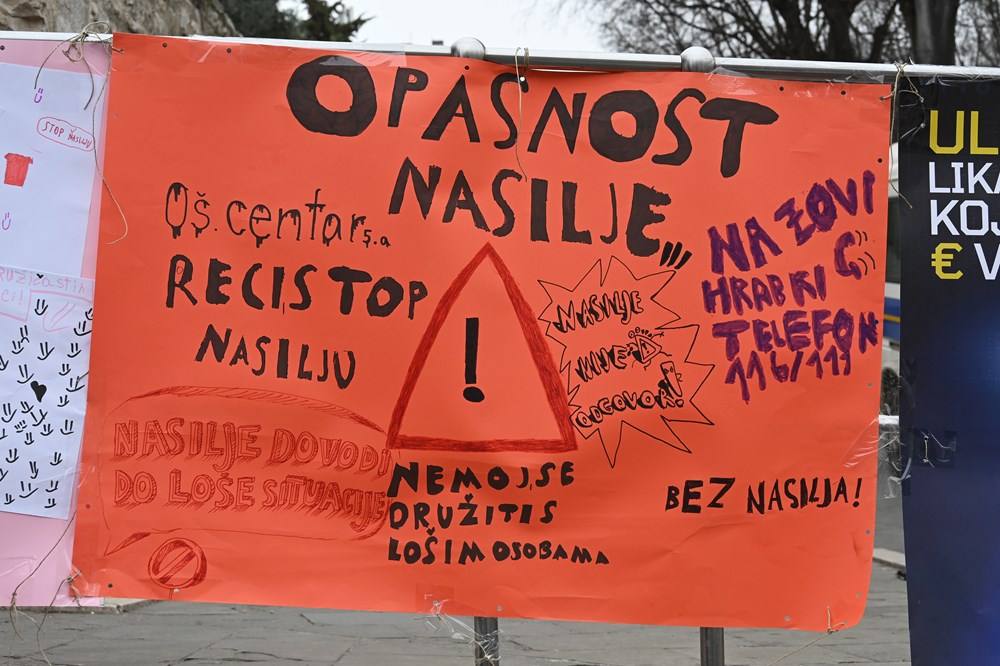 STOP NASILJU
OPASNOST
NASILJE
OŠ. centar š.a
RECI STOP
NASILJU
NASILJE DOVODI
DO LOŠE SITUACIJE
NEMOJ SE
DRUŽITI S
LOŠIM OSOBAMA
NASILJE
NIJE
ODGOVOR!
NAZOVI
HRABRI
TELEFON
116/111
BEZ NASILJA!
UL
LIKA
KOJ
€ V